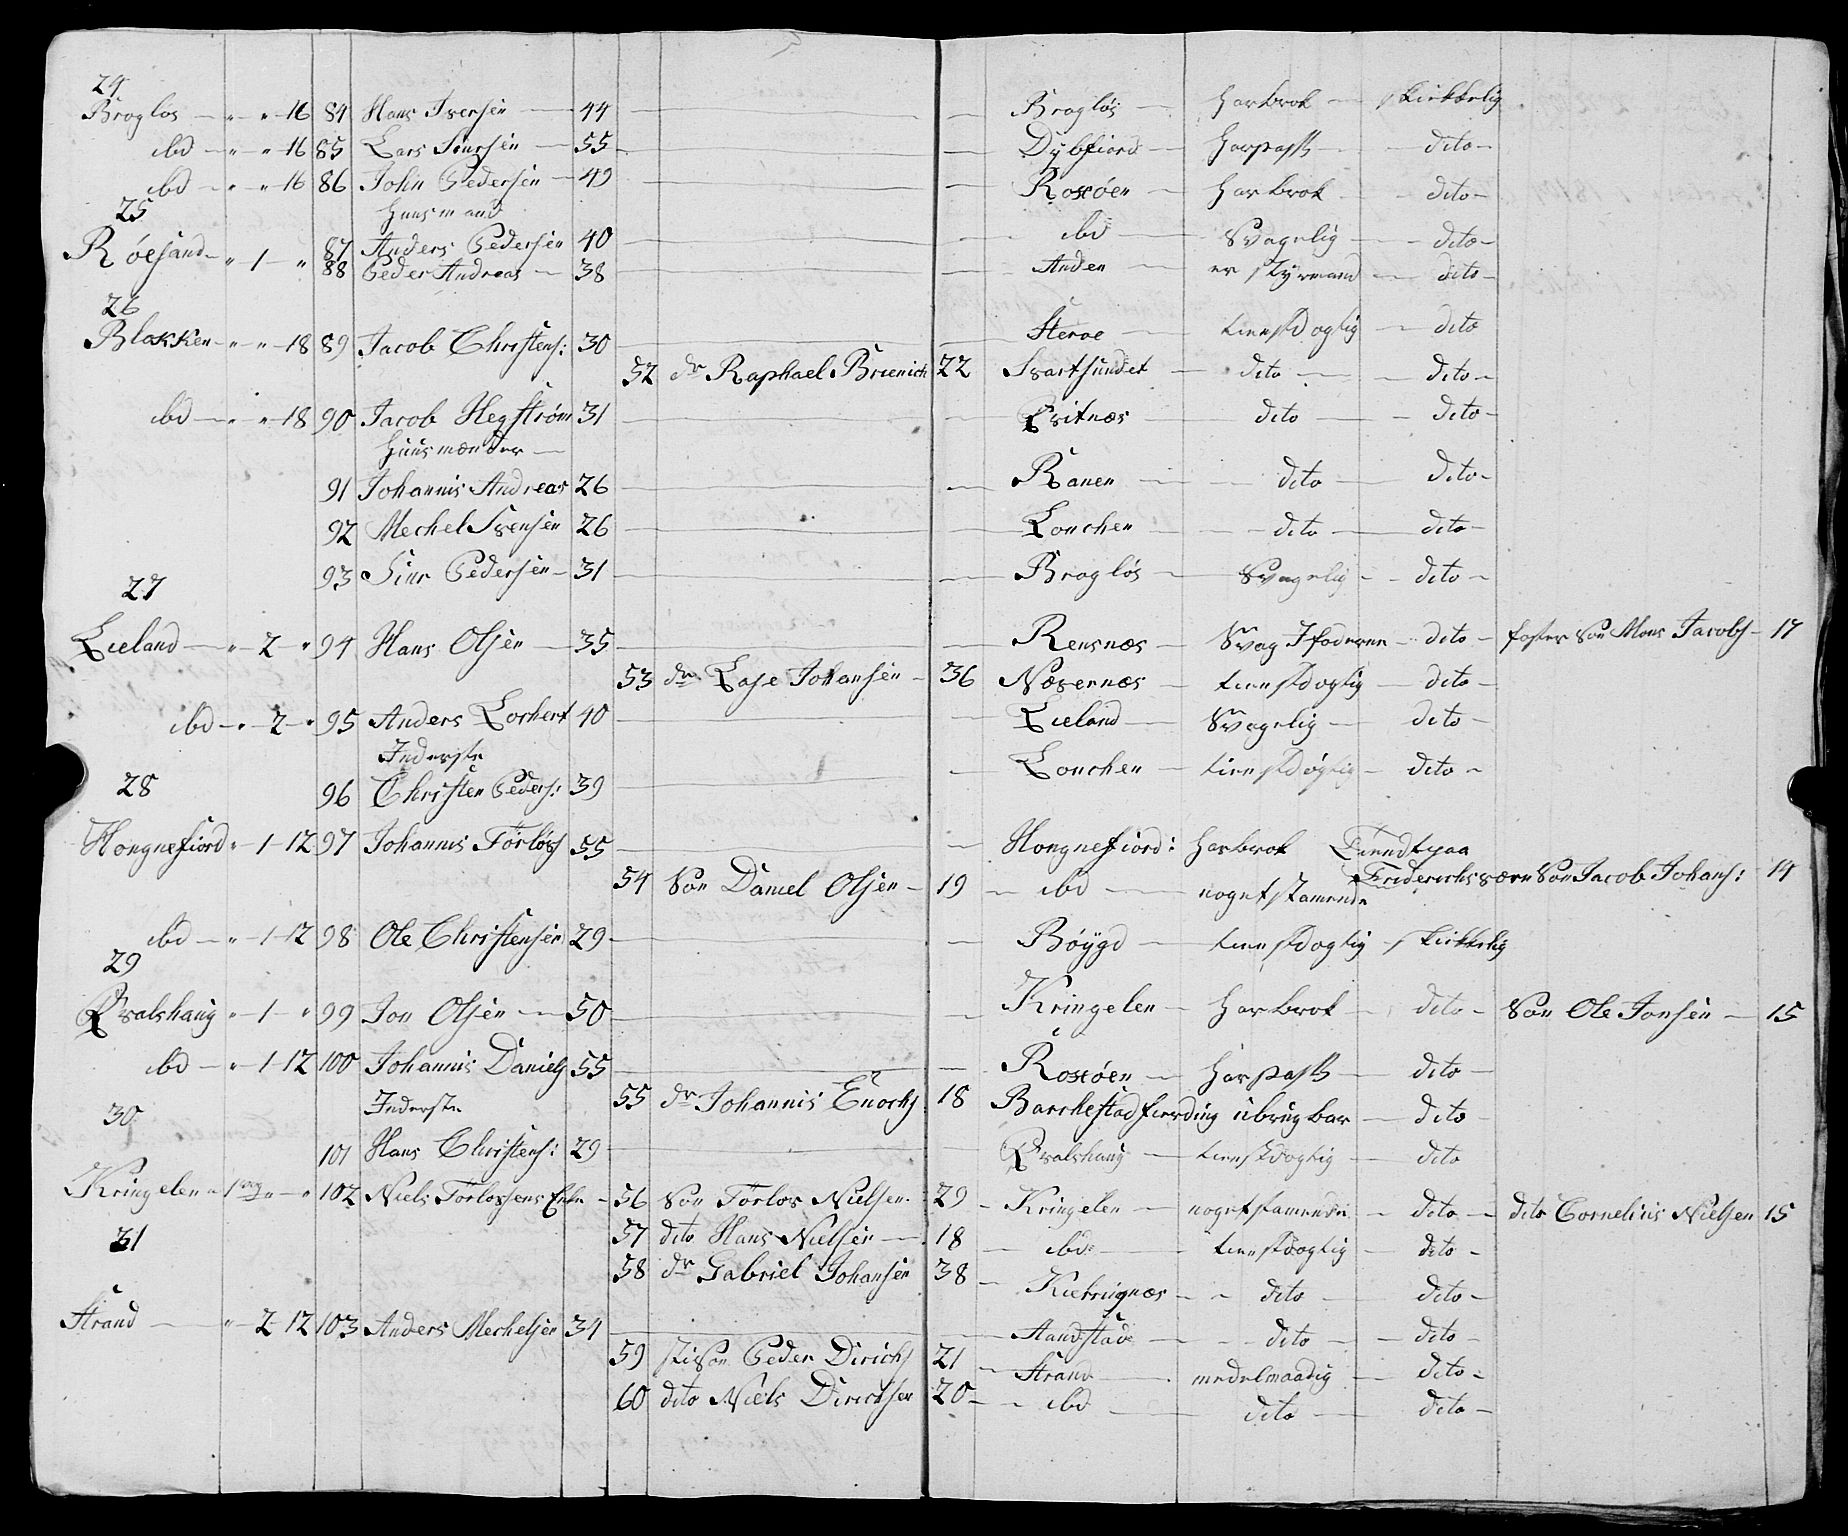 24
Broglos — " " 16 84 Hans Iversen — 44 — Brogløs — har brok — skikkelig
ibd — " " 16 85 Lars Siursen — 55 — Dybfiord — har pass — dito —
ibd — " " 16 86 John Pedersen — 49 — Roxøen — har brok — dito —
Huusmand
25
Røesand — " 1 — " 87 Anders Pedersen 40 — ibd — Svagelig — dito —
88 Peder Andreas — 38 — Anden — er styrmand — dito —
26
Blokken — " " 18 89 Jacob Christens: 30 — Steroe — tienstdogtig — dito
52 dr Raphael Brienich 22 Svartsundet — dito — dito —
ibd — " " 18 90 Jacob Hegstrøm 31 — Qvitnæs — dito — dito —
Huusmænder —
91 Johannis Andreas 26 — Ranen — dito — dito —
92 Mechel Svensen 26 — Lonchen — dito — dito —
93 Siur Pedersen — 31 — Brogløs — Svagelig — dito —
27
Lieland — " 2 — " 94 Hans Olsen — 35 — Rensnæs — Svag I foderne — dito — foster Søn Mons Jacobs — 17
53 dr Lase Johansen — 36 Næsernæs — tienstdogtig — dito —
ibd — " 2 — " 95 Anders Lorhert 40 — Lieland — Svagelig — dito —
Inderste
28
96 Christen Peders: 39 — Lonchen — tienstdogtig — dito —
Hongnefiord " 1 12 97 Johannis Törløs 55 — Hongnefiord: har brok Tiendt paa
54 Søn Daniel Olsen — 19 — ibd — noget stamende Friderichsværn Søn Jacob Johans: 14
ibd — " 1 12 98 Ole Christensen 29 — Bøygd — tienstdogtig — skikkelig
29
Qvalshaug " 1 — " 99 Jon Olsen — 50 — Kringelen — har brok — dito — Søn Ole Jonsen — 15
ibd — " 1 12 100 Johannis Daniels 55 — Roxøen — har pass — dito —
Inderste 55 dr Johannis Enochs 18 Barchestad fierding ubrugbar — dito —
30
101 Hans Christens: 29 — Qvalshaug — tienstdogtig — dito
Kringelen " 1 vog " — " 102 Niels Torlossens Enke — 56 Søn Törlos Nielsen. 29 — Kringelen — noget stamende — dito — dito Cornelius Nielsen 15
31 57 dito Hans Nielsen — 18 — ibd — tienstdogtig — dito —
58 dr Gabriel Johansen 38 — — dito — dito —
Strand — " 2 12 103 Anders Mechelsen 34 — Sandstade — dito — dito —
59 stisøn Peder Dirichs 21 — Strand — medelmaadig — dito —
60 dito Niels Dirichsen 20 — ibd — dito — dito —